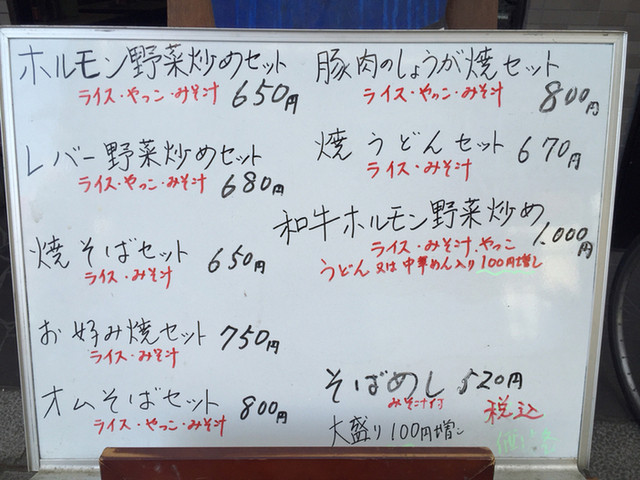 ホルモン野菜炒めセット
ライス・やっこ・みそ汁 650円
レバー野菜炒めセット
ライス・やっこ・みそ汁 680円
焼そばセット 650円
ライス・みそ汁
お好み焼セット 750円
ライス・みそ汁
オムそばセット 800円
ライス・やっこ・みそ汁
豚肉のしょうが焼セット
ライス・やっこ・みそ汁 800円
焼うどんセット 670円
ライス・みそ汁
和牛ホルモン野菜炒め
ライス・みそ汁・やっこ 1.000円
うどん又は中華めん入り100円増し
そばめし 520円
みそ汁付
大盛り100円増し
税込